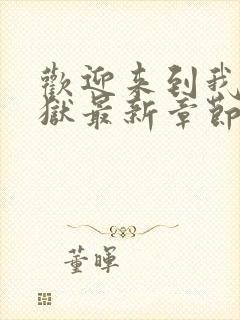 歡迎来到我
獄最新章節
董暉